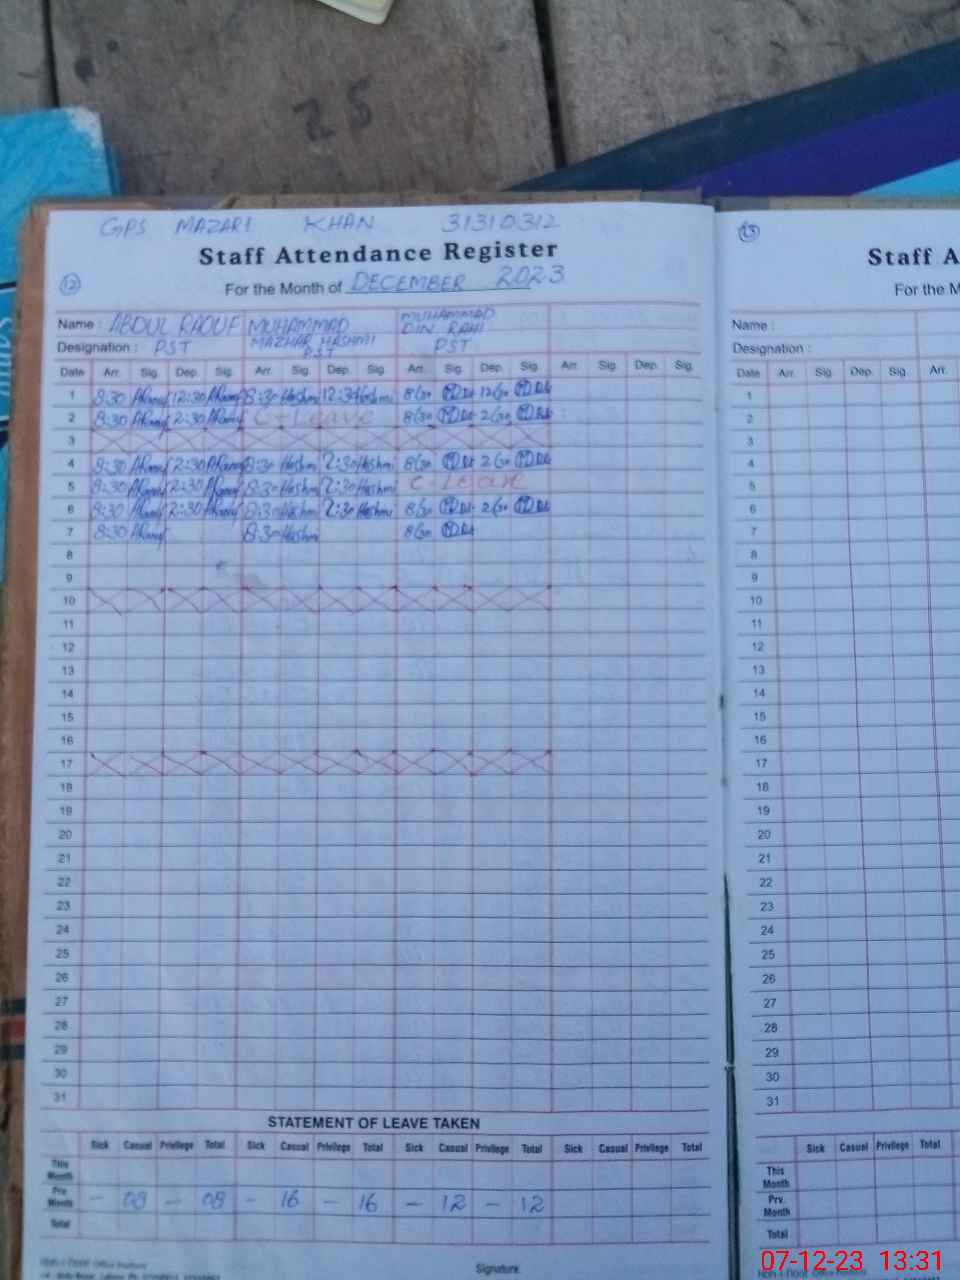 25
GPS MAZARI KHAN 31310312
Staff Attendance Register
12
For the Month of DECEMBER 2023
Name : ABDUL RAOUF MUHAMMAD MAZHAR HASHMI MUHAMMAD DIN RAHI
Designation : PST PST PST
Date Arr. Sig. Dep. Sig. Arr. Sig. Dep. Sig. Arr. Sig. Dep. Sig. Arr. Sig. Dep. Sig.
1 8:30 ARaouf 12:30 ARaouf 8:30 Hashmi 12:30 Hashmi 8/30 12/30
2 8:30 ARaouf 2:30 ARaouf C-Leave 8/30 2/30
3
4 8:30 ARaouf 2:30 ARaouf 8:30 Hashmi 2:30 Hashmi 8/30 2/30
5 8:30 ARaouf 2:30 ARaouf 8:30 Hashmi 2:30 Hashmi C-Leave
6 8:30 ARaouf 2:30 ARaouf 8:30 Hashmi 2:30 Hashmi 8/30 2/30
7 8:30 ARaouf 8:30 Hashmi 8/30
8
9
10
11
12
13
14
15
16
17
18
19
20
21
22
23
24
25
26
27
28
29
30
31
STATEMENT OF LEAVE TAKEN
Sick Casual Privilege Total Sick Casual Privilege Total Sick Casual Privilege Total Sick Casual Privilege Total
This Month
Prv. Month - 08 - 08 - 16 - 16 - 12 - 12
Total
Signature
13
Staff A
For the M
Name :
Designation :
Date Arr. Sig. Dep. Sig. Arr.
1
2
3
4
5
6
7
8
9
10
11
12
13
14
15
16
17
18
19
20
21
22
23
24
25
26
27
28
29
30
31
Sick Casual Privilege Total
This Month
Prv. Month
Total
07-12-23 13:31